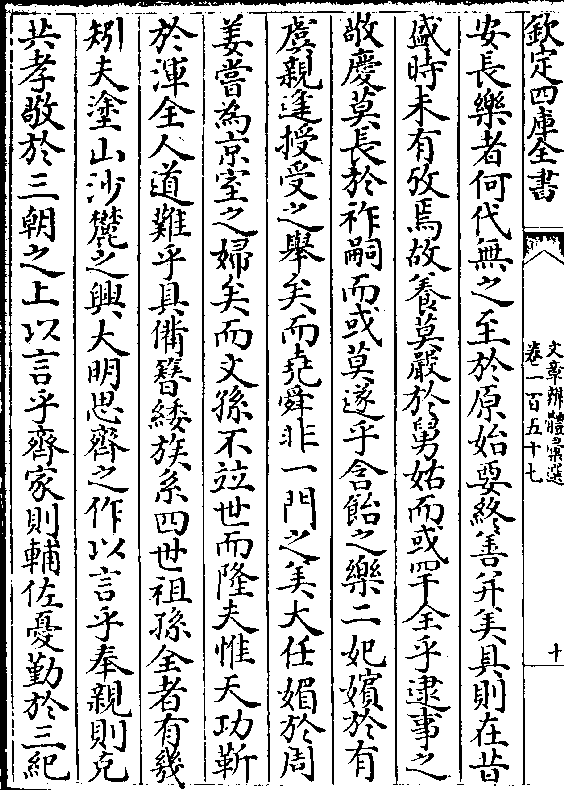 欽定四庫全書
文章辨體彙選
卷一百五十七
十
安長樂者何代無之至於原始要終善并美具則在昔
盛時未有攷焉故養莫嚴於舅姑而或罕全乎逮事之
敬慶莫長於祚嗣而或莫遂乎含飴之樂二妃嬪於有
虞親逢授受之舉矣而堯舜非一門之美大任媚於周
姜嘗為京室之婦矣而文孫不竝世而隆夫惟天功靳
於渾全人道難乎具備簪緌族系四世祖孫全者有幾
矧夫塗山沙麓之興大明思齊之作以言乎奉親則克
共孝敬於三朝之上以言乎齊家則輔佐憂勤於三紀